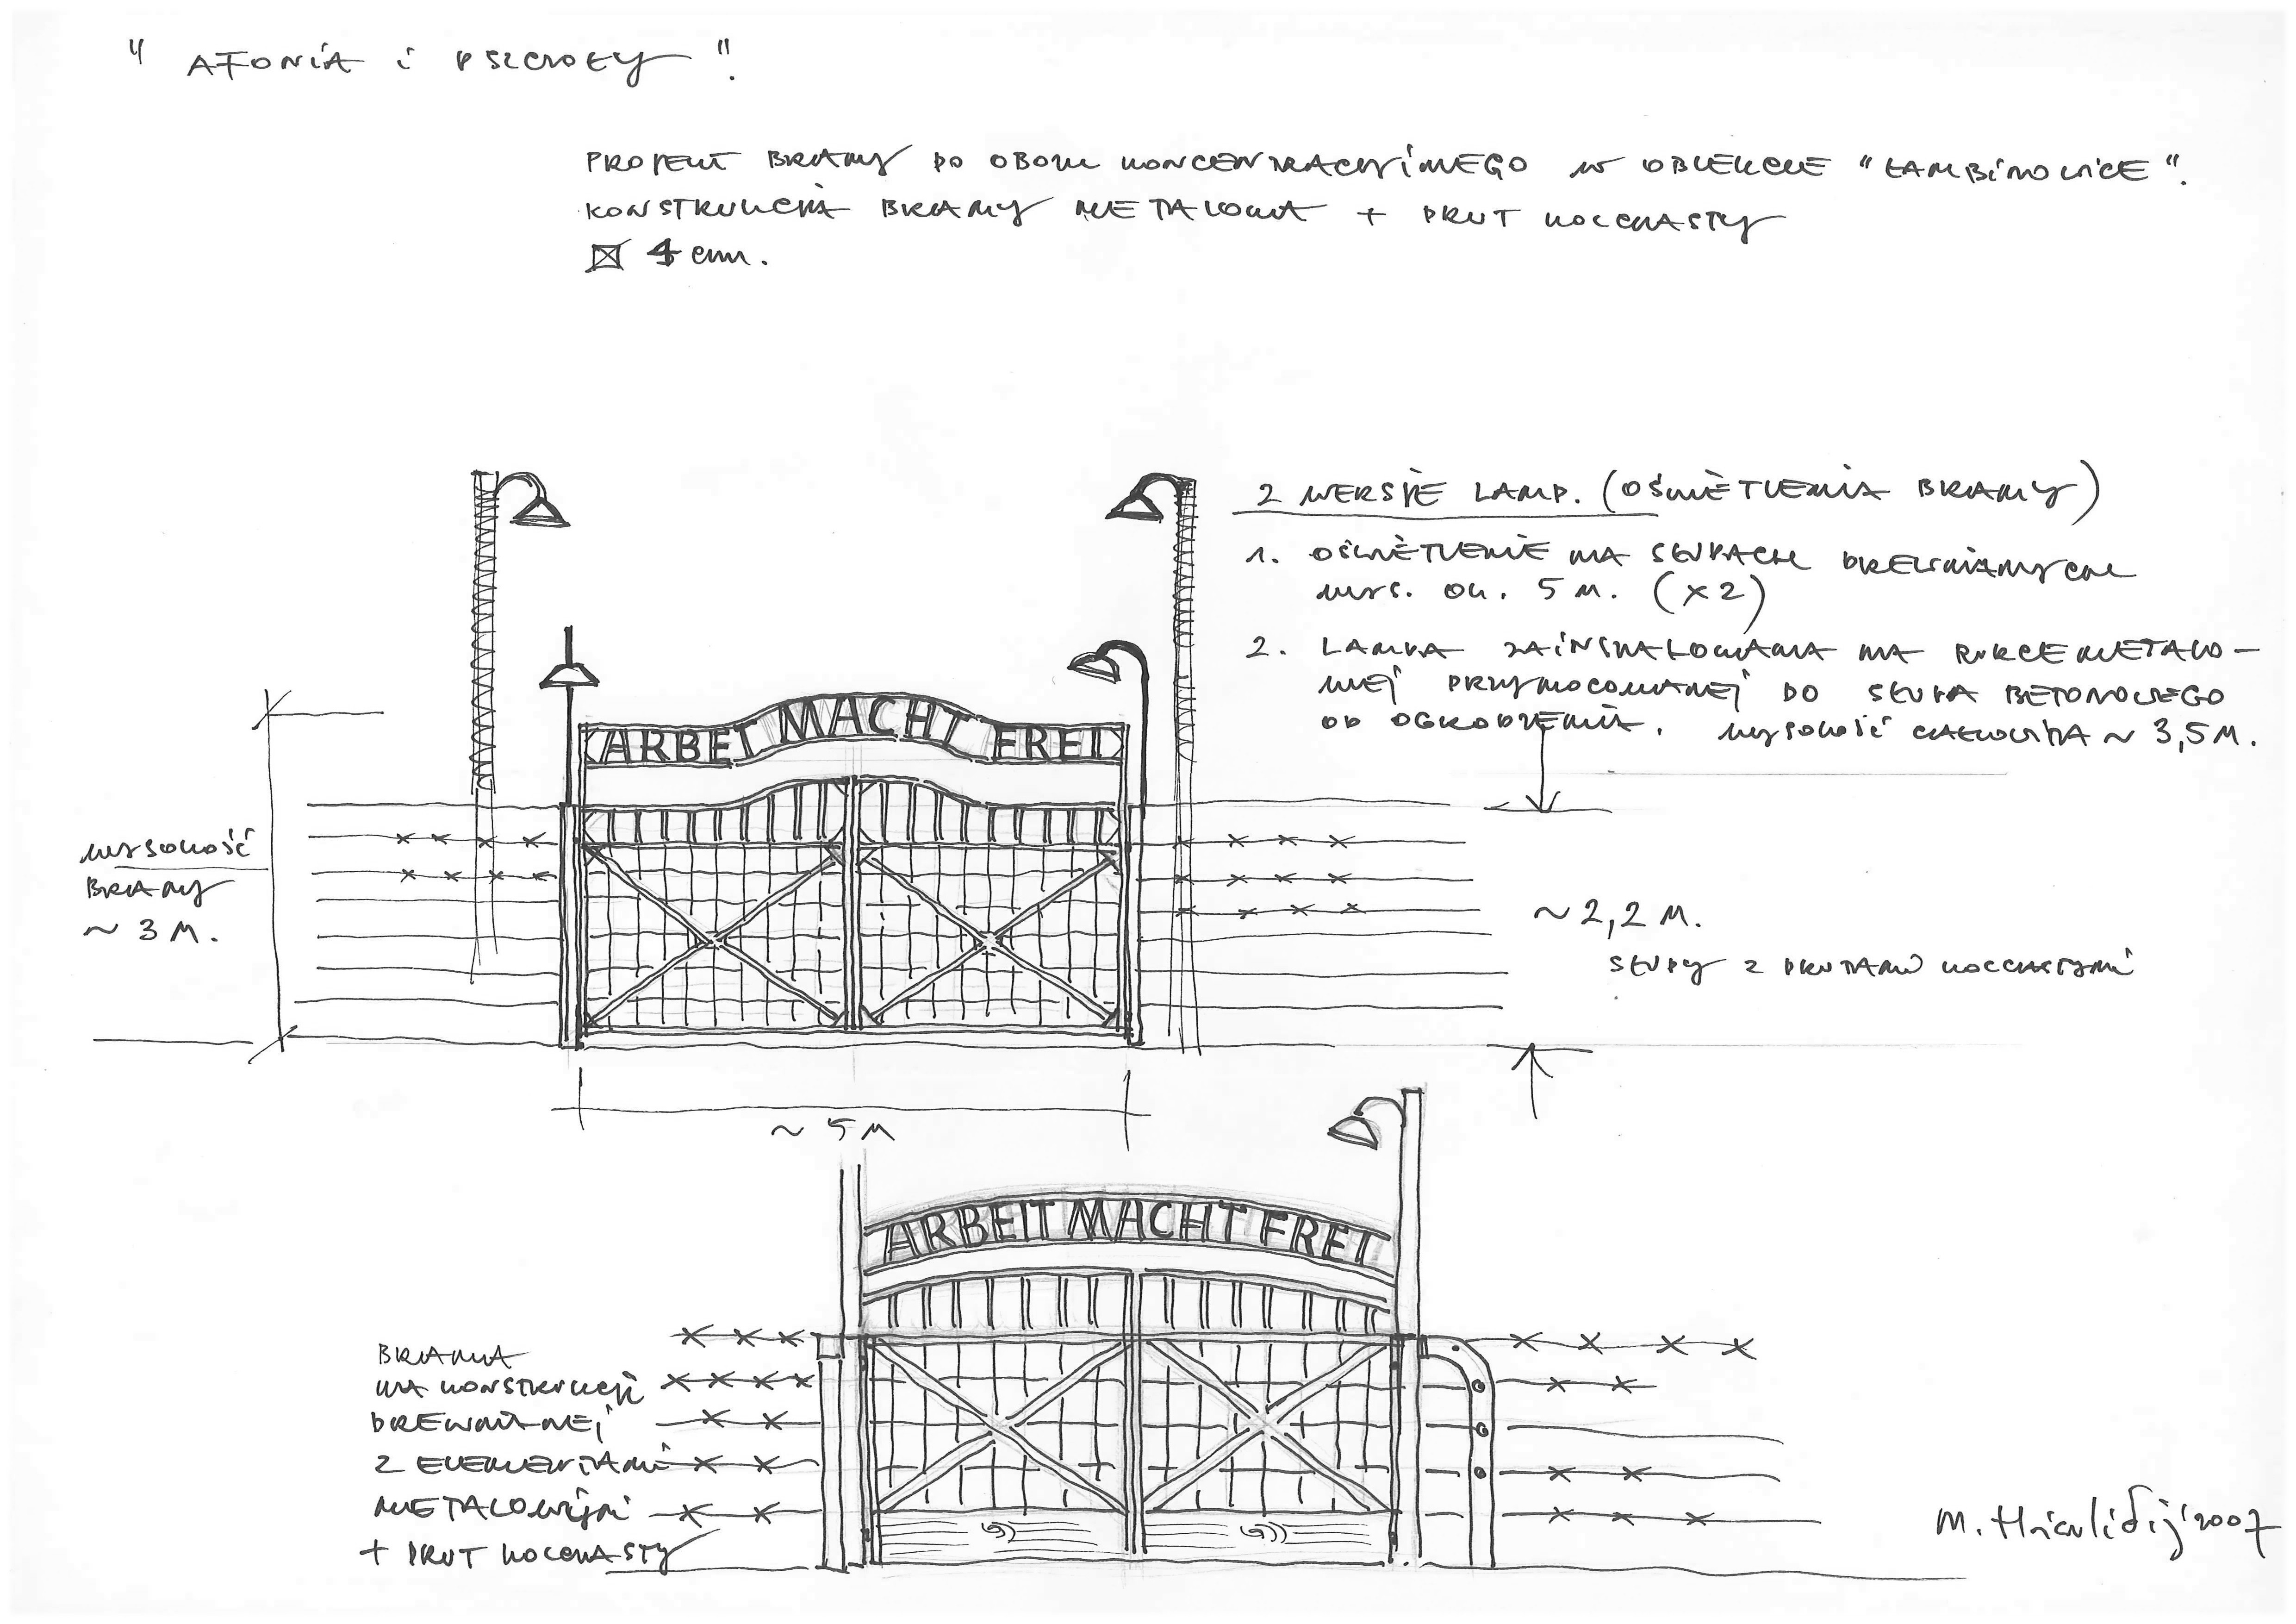 " AFONIA i PSZCZOŁY ".
PROJEKT BRAMY DO OBOZU KONCENTRACYJNEGO W OBIEKCIE "ŁAMBINOWICE".
KONSTRUKCJA BRAMY METALOWA + DRUT KOLCZASTY
4 cm.
2 WERSJE LAMP. (OŚWIETLENIA BRAMY)
1. OŚWIETLENIE NA SŁUPACH DREWNIANYCH
WYS. OK. 5 M. (x2)
2. LAMPA ZAINSTALOWANA NA RURCE METALO-
WEJ PRZYMOCOWANEJ DO SŁUPA BETONOWEGO
OD OGRODZENIA. WYSOKOŚĆ CAŁKOWITA ~ 3,5 M.
ARBEIT MACHT FREI
WYSOKOŚĆ
BRAMY
~ 3 M.
~ 2,2 M.
SŁUPY Z DRUTAMI KOLCZASTYMI
~ 5 M
ARBEIT MACHT FREI
BRAMA
NA KONSTRUKCJI
DREWNIANEJ
Z ELEMENTAMI
METALOWYMI
+ DRUT KOLCZASTY
2007